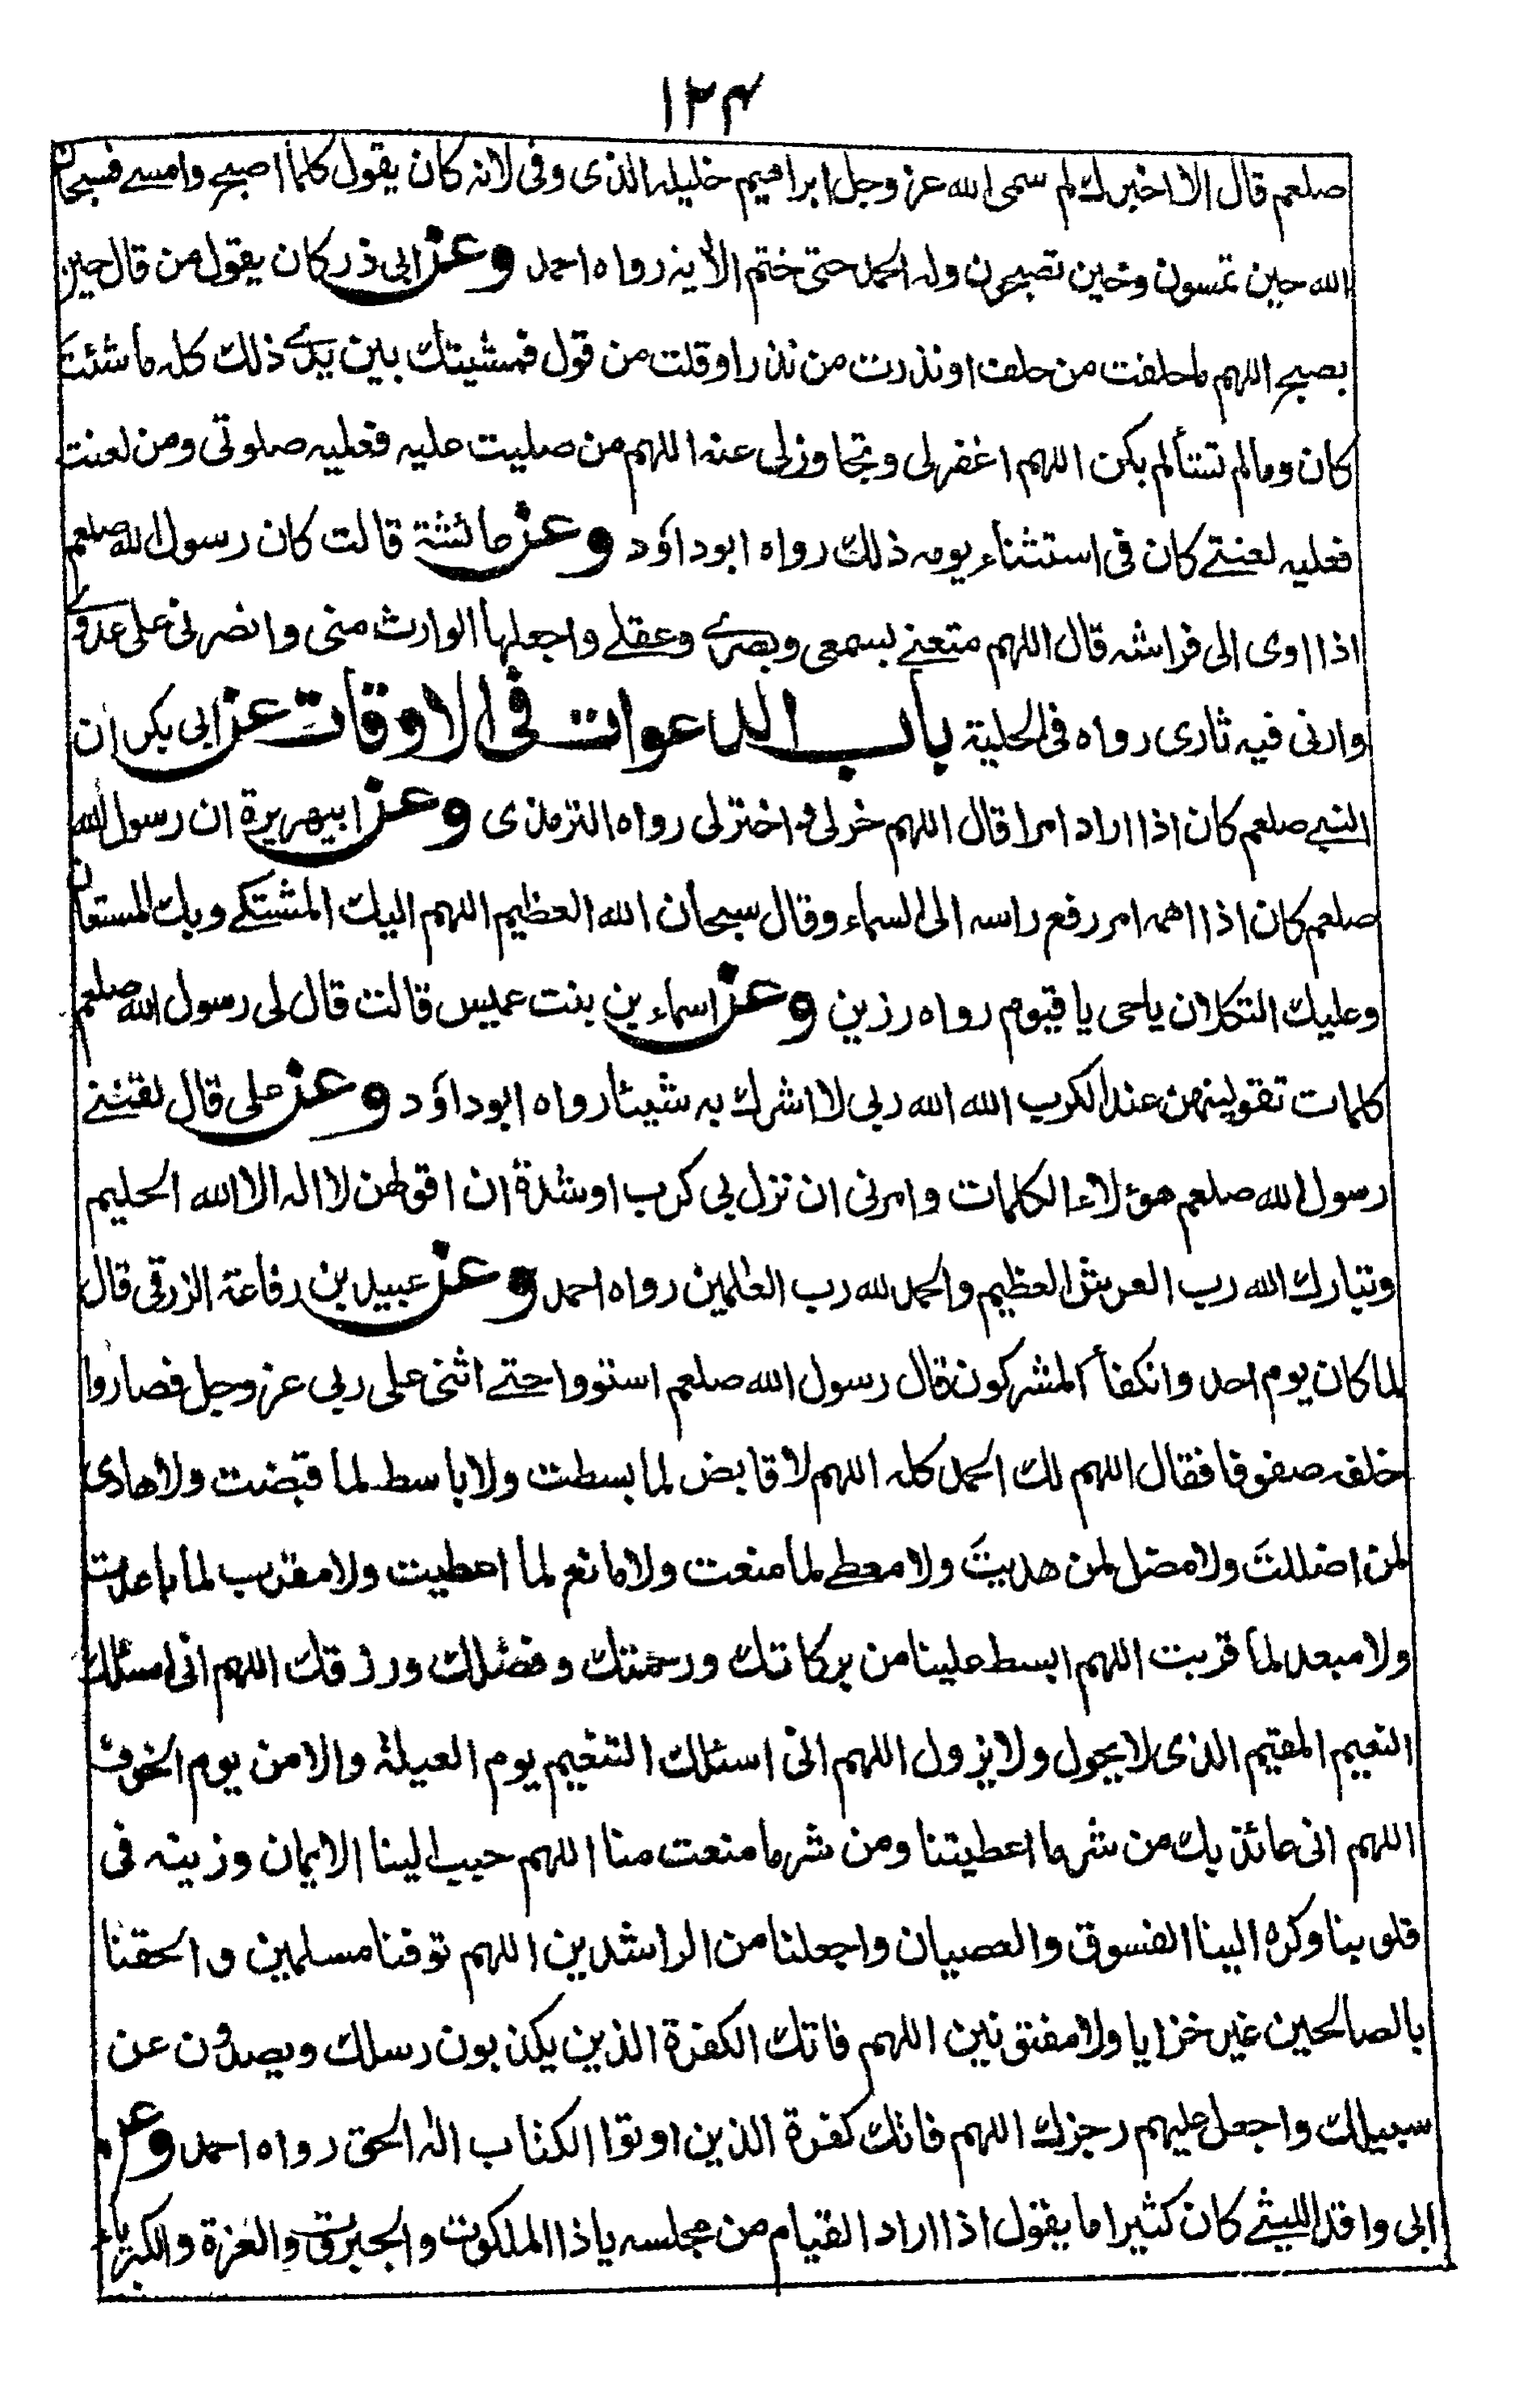 ١٣۴
صلعم قال الا اخبرك لم سمى الله عز وجل ابراهيم خليله الذى وفى لانه كان يقول كلما اصبح وامسے فسبحان
الله حين تمسون وحين تصبحون وله الحمد حتى ختم الاٰية رواه احمد وعن ابى ذر كان يقول من قال حين
يصبح اللهم ما حلفت من حلف او نذرت من نذر او قلت من قول فمشيتك بين يدے ذلك كله ما شئت
كان وما لم تشأ لم يكن اللهم اغفر لى وتجاوز لى عنه اللهم من صليت عليه فعليه صلوتى ومن لعنت
فعليه لعنتے كان فى استثناء يومه ذلك رواه ابوداؤد وعن عائشة قالت كان رسول الله صلعم
اذا اوى الى فراشه قال اللهم متعنے بسمعى وبصرے وعقلے واجعلها الوارث منى وانصرنى على عدوے
وارنى فيه ثارى رواه فى الحلية باب الدعوات فى الاوقات عن ابى بكر ان
النبے صلعم كان اذا اراد امرا قال اللهم خر لى واختر لى رواه الترمذى وعن ابيهريرة ان رسول الله
صلعم كان اذا اهمه امر رفع راسه الى السماء وقال سبحان الله العظيم اللهم اليك المشتكے وبك المستعان
وعليك التكلان ياحى يا قيوم رواه رزين وعن اسماء بن بنت عميس قالت قال لى رسول الله صلعم
كلمات تقولينهن عند الكرب الله الله ربى لا اشرك به شيئا رواه ابوداؤد وعن على قال لقننے
رسول الله صلعم هؤلاء الكلمات وامرنى ان نزل بى كرب او شدة ان اقولهن لا اله الا الله الحليم
وتبارك الله رب العرش العظيم والحمد لله رب العٰلمين رواه احمد وعن عبيد بن رفاعة الزرقى قال
لما كان يوم احد وانكفأ المشركون قال رسول الله صلعم استووا حتے اثنى على ربى عز وجل فصاروا
خلفه صفوفا فقال اللهم لك الحمد كله اللهم لا قابض لما بسطت ولا باسط لما قبضت ولا هادى
لمن اضللت ولا مضل لمن هديت ولا معطے لما منعت ولا مانع لما اعطيت ولا مقرب لما باعدت
ولا مبعد لما قربت اللهم ابسط علينا من بركاتك ورحمتك وفضلك ورزقك اللهم انى اسئلك
النعيم المقيم الذى لا يحول ولا يزول اللهم انى اسئلك النعيم يوم العيلة والامن يوم الخوف
اللهم انى عائذ بك من شر ما اعطيتنا ومن شر ما منعت منا اللهم حبب الينا الايمان وزينه فى
قلوبنا وكره الينا الفسوق والعصيان واجعلنا من الراشدين اللهم توفنا مسلمين والحقنا
بالصالحين غير خزايا ولا مفتونين اللهم قاتل الكفرة الذين يكذبون رسلك ويصدون عن
سبيلك واجعل عليهم رجزك اللهم قاتل كفرة الذين اوتوا الكتاب الٰه الحق رواه احمد وعن
ابى واقد الليثے كان كثيرا ما يقول اذا اراد القيام من مجلسه ياذا الملكوت والجبروت والعزة والكبرياء